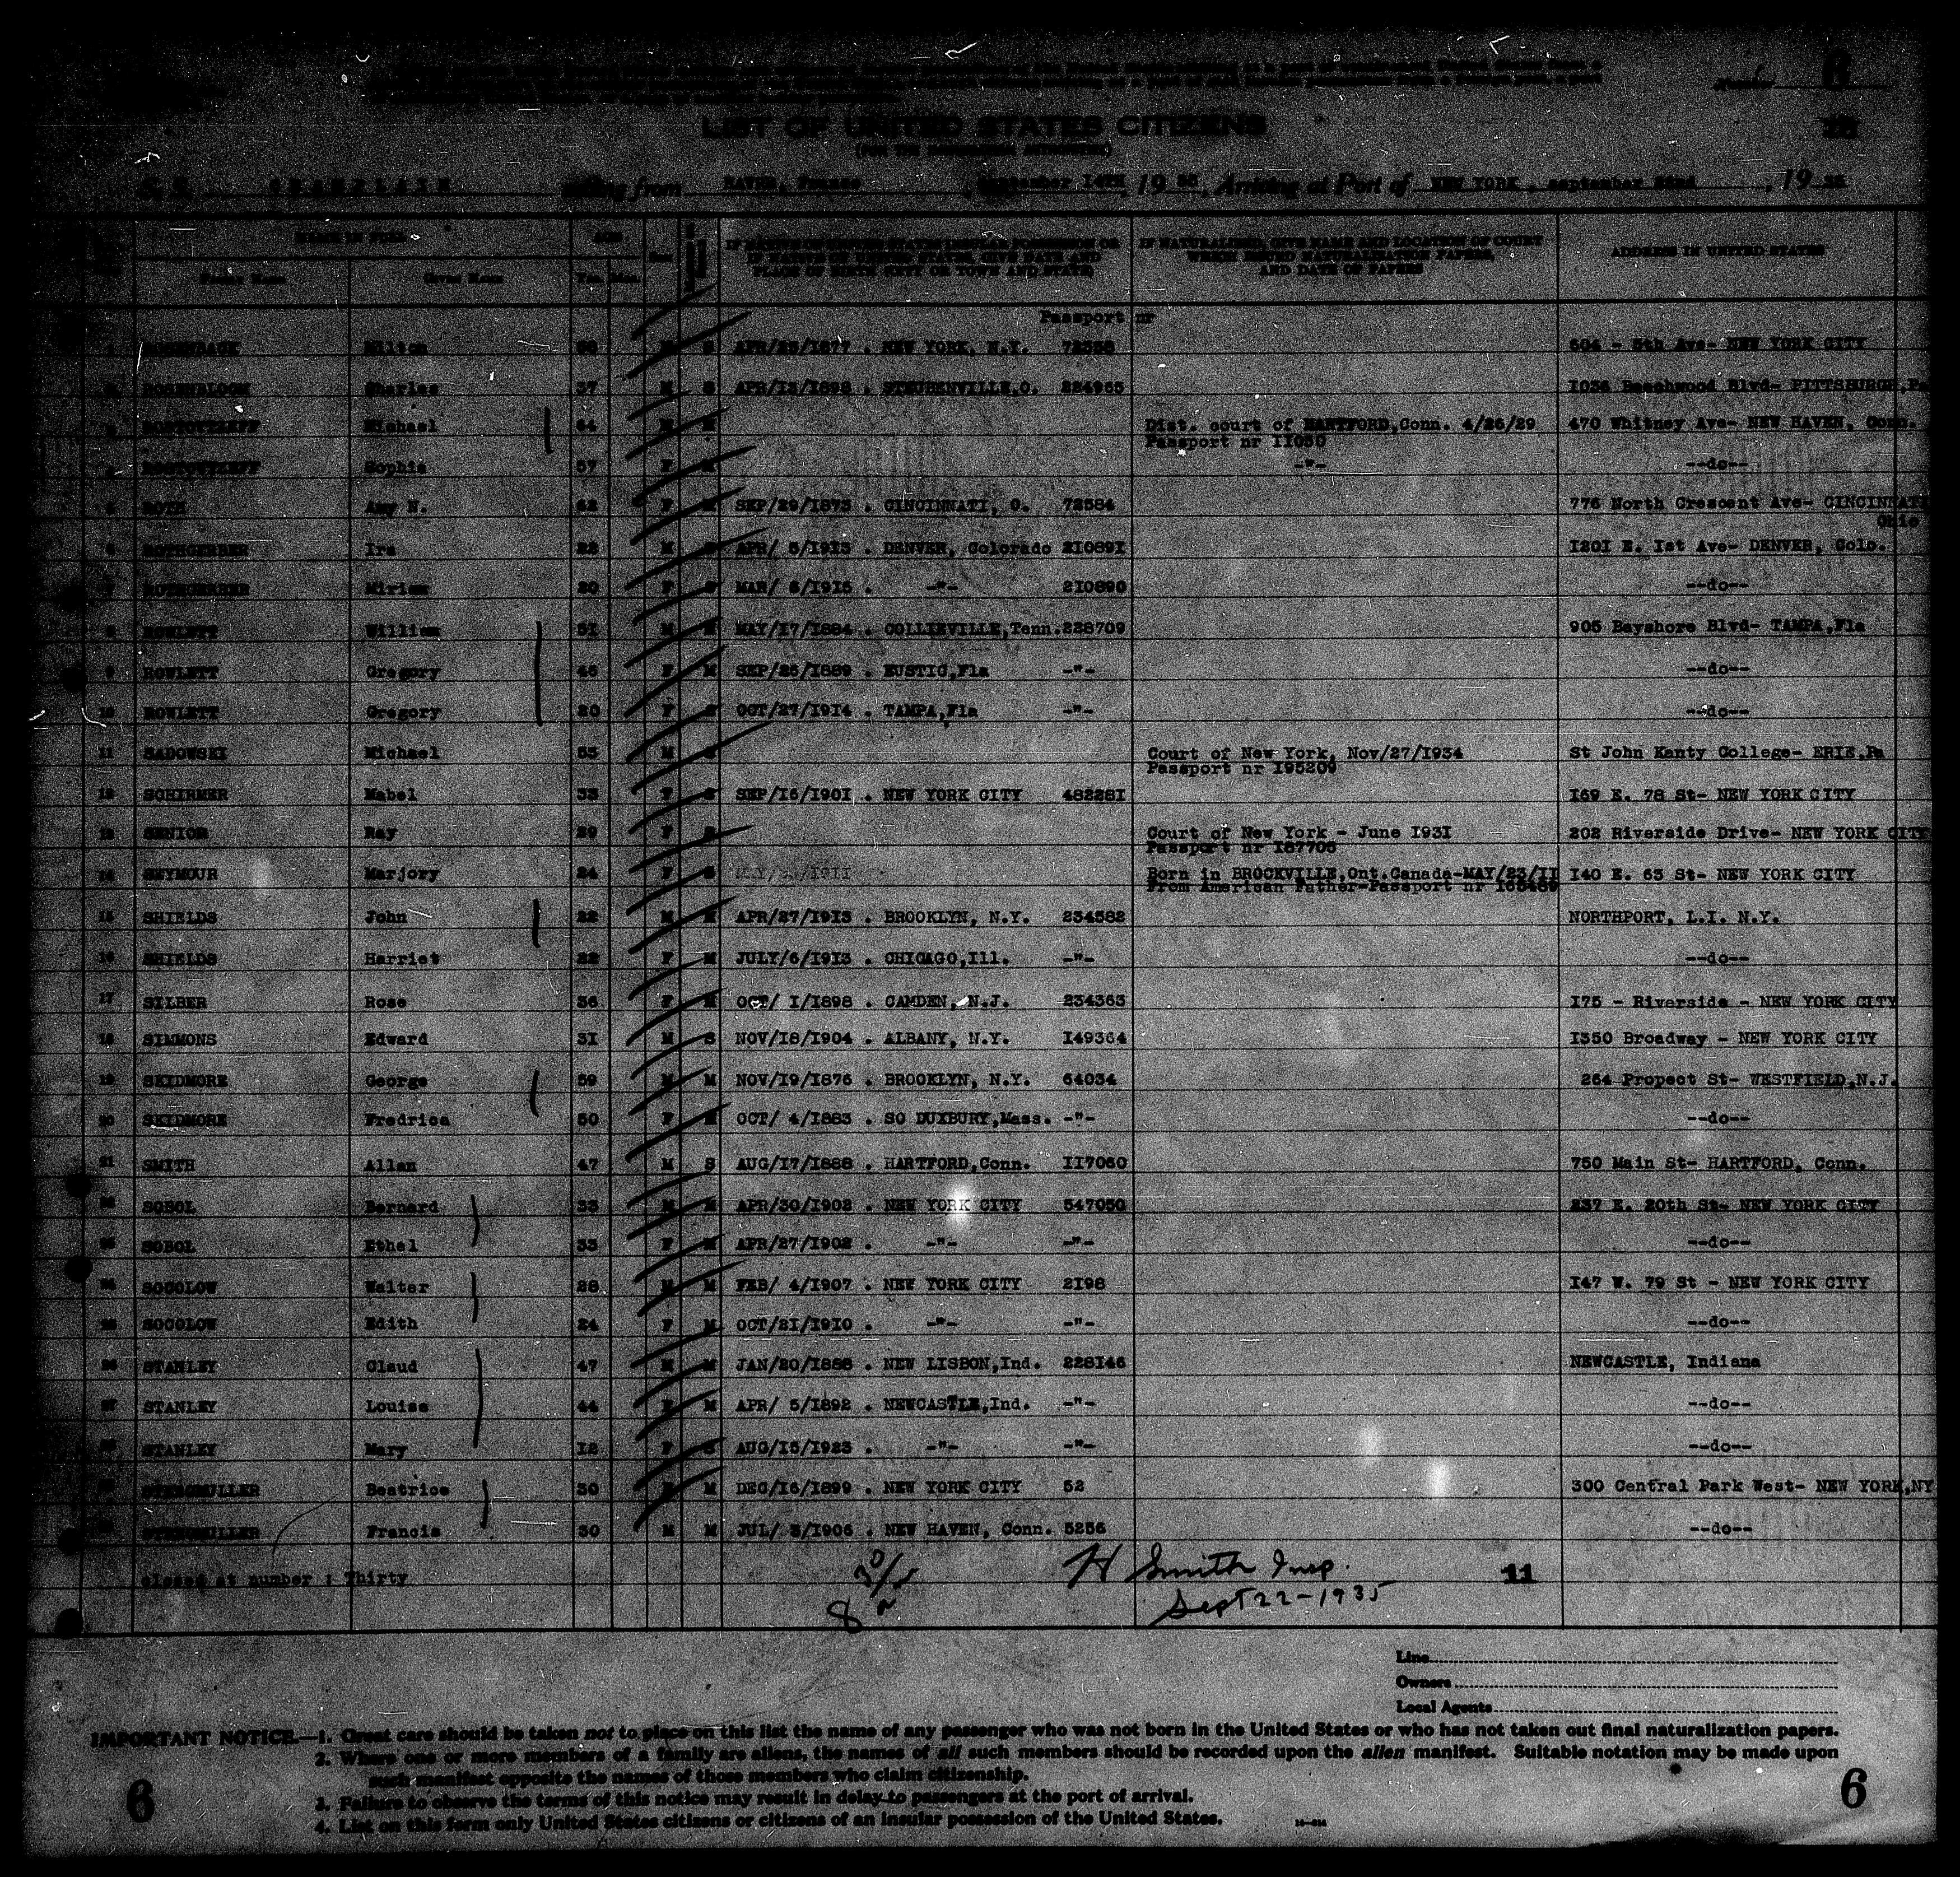 6
LIST OF UNITED STATES CITIZENS
(FOR THE IMMIGRATION AUTHORITIES)
S. S. sailing from HAVRE, France, September 14th, 19 35, Arriving at Port of NEW YORK, september 22nd, 19 35
NAME IN FULL AGE Sex ADDRESS IN UNITED STATES
IF NATURALIZED, GIVE NAME AND LOCATION OF COURT WHICH ISSUED NATURALIZATION PAPERS, AND DATE OF PAPERS
Family Name Given Name Yrs. Mos. PLACE OF BIRTH (CITY OR TOWN AND STATE)
Passport nr
Milton M S APR/25/1877 . NEW YORK, N.Y. 604 - 5th Ave- NEW YORK CITY
2 ROSENBLOOM Charles 37 M S APR/13/1898 . STEUBENVILLE,O. 224965 1036 Beechwood Blvd- PITTSBURGH,Pa
3 ROSTOVTZEFF Michael 64 M M Dist. court of HARTFORD,Conn. 4/26/29 470 Whitney Ave- NEW HAVEN, Conn.
Passport nr II050
4 ROSTOVTZEFF Sophie 57 F M -"- --do--
5 ROTH Amy N. 62 F M SEP/29/1873 . CINCINNATI, O. 72584 776 North Crescent Ave- CINCINNATI
Ohio
6 ROTHGERBER Ira 22 M S APR/ 5/1913 . DENVER, Colorado 210891 I20I E. Ist Ave- DENVER, Colo.
7 ROTHGERBER Miriam 20 F S MAR/ 6/1915 . -"- 210890 --do--
8 ROWLETT William 51 M M MAY/17/1884 . COLLIEVILLE,Tenn.228709 905 Bayshore Blvd- TAMPA,Fla
9 ROWLETT Gregory 46 F M SEP/26/1889 . EUSTIC,Fla -"- --do--
10 ROWLETT Gregory 20 F S OCT/27/1914 . TAMPA,Fla -"- --do--
11 SADOWSKI Michael 53 M S Court of New York, Nov/27/1934 St John Kanty College- ERIE,Pa
Passport nr I95209
12 SCHIRMER Mabel 33 F S SEP/16/190I . NEW YORK CITY 48228I I69 E. 78 St- NEW YORK CITY
13 SENIOR Ray 29 F S Court of New York - June I93I 202 Riverside Drive- NEW YORK CITY
Passport nr I87705
14 SEYMOUR Marjory 24 F S Born in BROCKVILLE,Ont.Canada-MAY/23/II I40 E. 63 St- NEW YORK CITY
From American Father-Passport nr 165489
15 SHIELDS John 22 M M APR/27/I913 . BROOKLYN, N.Y. 234582 NORTHPORT, L.I. N.Y.
16 SHIELDS Harriet 22 F M JULY/6/I913 . CHICAGO,Ill. -"- --do--
17 SILBER Rose 36 F M OCT/ I/I898 . CAMDEN, N.J. 234363 I75 - Riverside - NEW YORK CITY
18 SIMMONS Edward 3I M S NOV/I8/I904 . ALBANY, N.Y. I49364 I350 Broadway - NEW YORK CITY
19 SKIDMORE George 59 M M NOV/I9/I876 . BROOKLYN, N.Y. 64034 264 Propect St- WESTFIELD,N.J.
20 SKIDMORE Fredrica 50 F M OCT/ 4/I883 . SO DUXBURY,Mass. -"- --do--
21 SMITH Allan 47 M S AUG/I7/I888 . HARTFORD,Conn. II7060 750 Main St- HARTFORD, Conn.
22 SOBOL Bernard 33 M M APR/30/I902 . NEW YORK CITY 547050 237 E. 20th St- NEW YORK CITY
23 SOBOL Ethel 33 F M APR/27/I902 . -"- -"- --do--
24 SOCOLOW Walter 28 M M FEB/ 4/I907 . NEW YORK CITY 2I98 I47 W. 79 St - NEW YORK CITY
25 SOCOLOW Edith 24 F M OCT/2I/I9I0 . -"- -"- --do--
26 STANLEY Claud 47 M M JAN/20/I888 . NEW LISBON,Ind. 228I46 NEWCASTLE, Indiana
27 STANLEY Louise 44 F M APR/ 5/I892 . NEWCASTLE,Ind. -"- --do--
28 STANLEY Mary I2 F S AUG/I5/I923 . -"- -"- --do--
29 Beatrice 30 F M DEC/I6/I899 . NEW YORK CITY 52 300 Central Park West- NEW YORK,NY
30 Francis 30 M M JUL/ 3/I906 . NEW HAVEN, Conn. 5256 --do--
closed at number : Thirty
H Smith Insp. 11
Sept 22-1935
Line
Owners
Local Agents
IMPORTANT NOTICE.—1. Great care should be taken not to place on this list the name of any passenger who was not born in the United States or who has not taken out final naturalization papers.
2. Where one or more members of a family are aliens, the names of all such members should be recorded upon the alien manifest. Suitable notation may be made upon
such manifest opposite the names of those members who claim citizenship.
3. Failure to observe the terms of this notice may result in delay to passengers at the port of arrival.
4. List on this form only United States citizens or citizens of an insular possession of the United States.
6 6